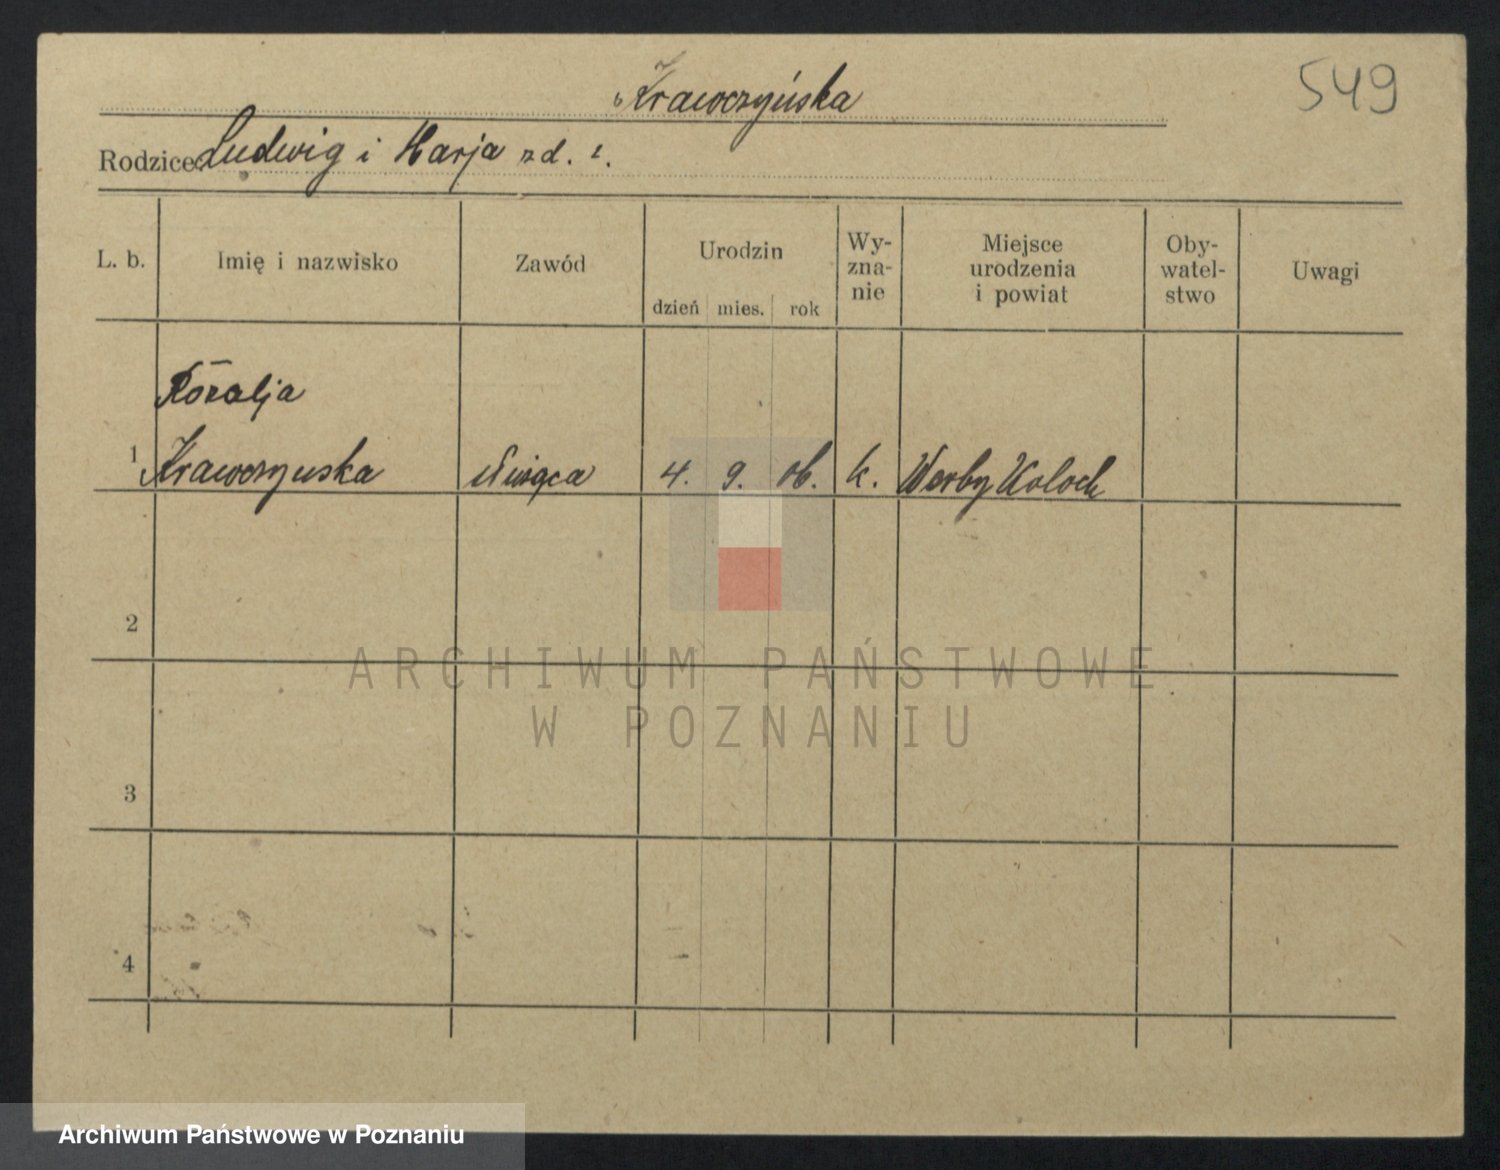 549
Krawczyńska
Rodzice: Ludwig i Marja zd. i.
L. b.
Imię i nazwisko
Zawód
Urodzin
dzień mies. rok
Wy-
zna-
nie
Miejsce
urodzenia
i powiat
Oby-
watel-
stwo
Uwagi
Rozalja
1 Krawczynska 4. 9. 06. k.
2
3
4
ARCHIWUM PAŃSTWOWE
W POZNANIU
Archiwum Państwowe w Poznaniu